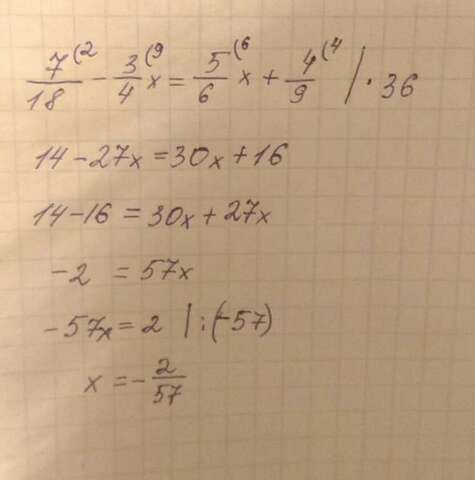 7/18 (2 - 3/4 (9 x = 5/6 (6 x + 4/9 (4 | · 36
14 - 27x = 30x + 16
14 - 16 = 30x + 27x
-2 = 57x
-57x = 2 | : (-57)
x = - 2/57